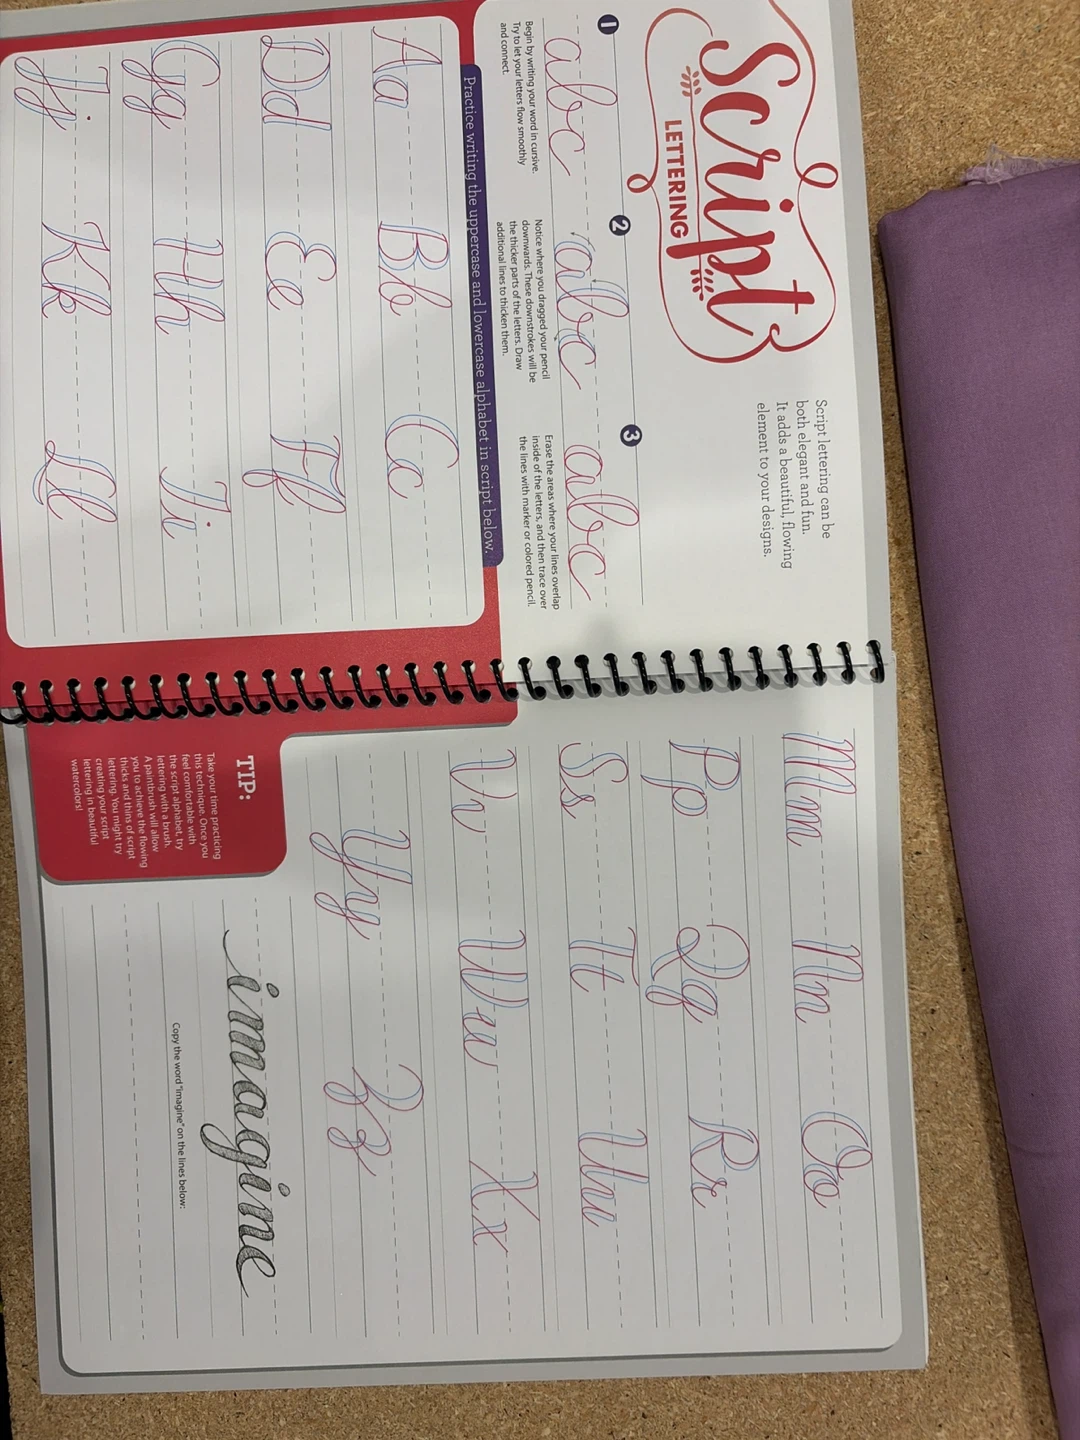 Script
LETTERING
Script lettering can be
both elegant and fun.
It adds a beautiful, flowing
element to your designs.
1
abc
Begin by writing your word in cursive.
Try to let your letters flow smoothly
and connect.
2
abc
Notice where you dragged your pencil
downwards. These downstrokes will be
the thicker parts of the letters. Draw
additional lines to thicken them.
3
abc
Erase the areas where your lines overlap
inside of the letters, and then trace over
the lines with marker or colored pencil.
Practice writing the uppercase and lowercase alphabet in script below.
Aa Bb Cc
Dd Ee Ff
Gg Hh Ii
Jj Kk Ll
Mm Nn Oo
Pp Qq Rr
Ss Tt Uu
Vv Ww Xx
Yy Zz
TIP:
Take your time practicing
this technique. Once you
feel comfortable with
the script alphabet, try
lettering with a brush.
A paintbrush will allow
you to achieve the flowing
thicks and thins of script
lettering. You might try
creating your script
lettering in beautiful
watercolors!
imagine
Copy the word "imagine" on the lines below: